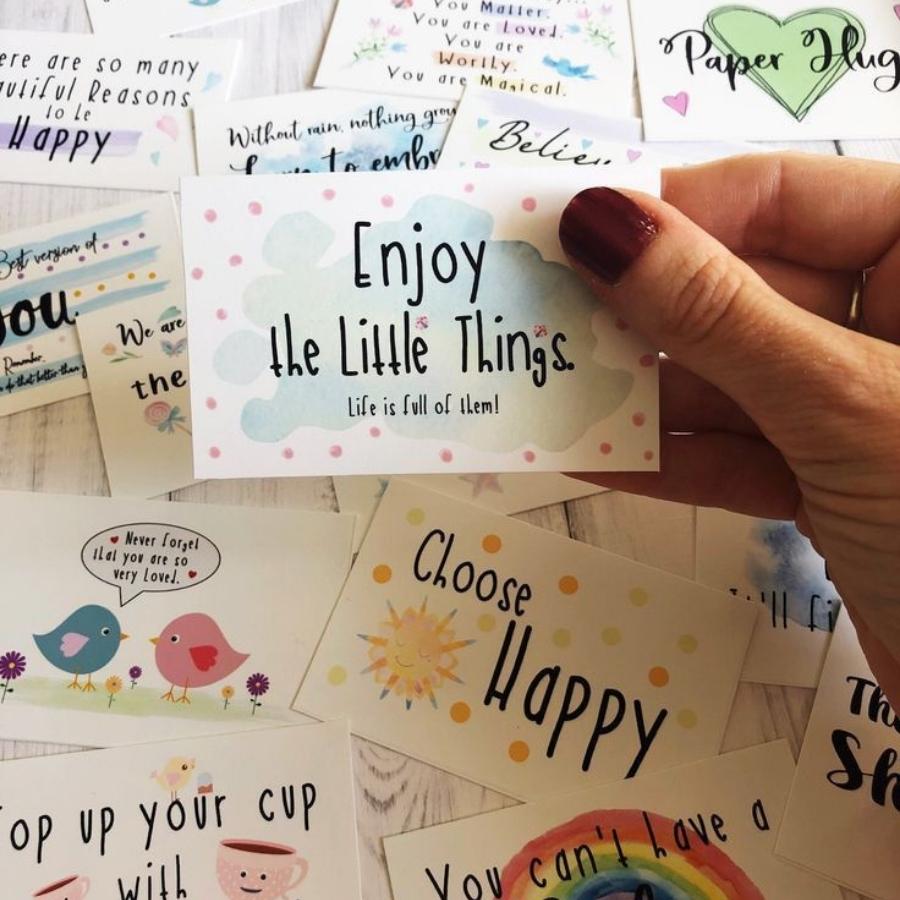 You Matter.
You are Loved.
You are
Worthy.
You are Magical.
Paper Hug
ere are so many
autiful Reasons
to be
Happy
Without rain, nothing grow
Learn to embr
Believ
Best version of
you.
Remember,
do that better than
We are
the
Enjoy
the Little Things.
Life is full of them!
Never forget
that you are so
very Loved.
Choose
Happy
ill fi
Th
Sh
op up your cup
with
You can't have a